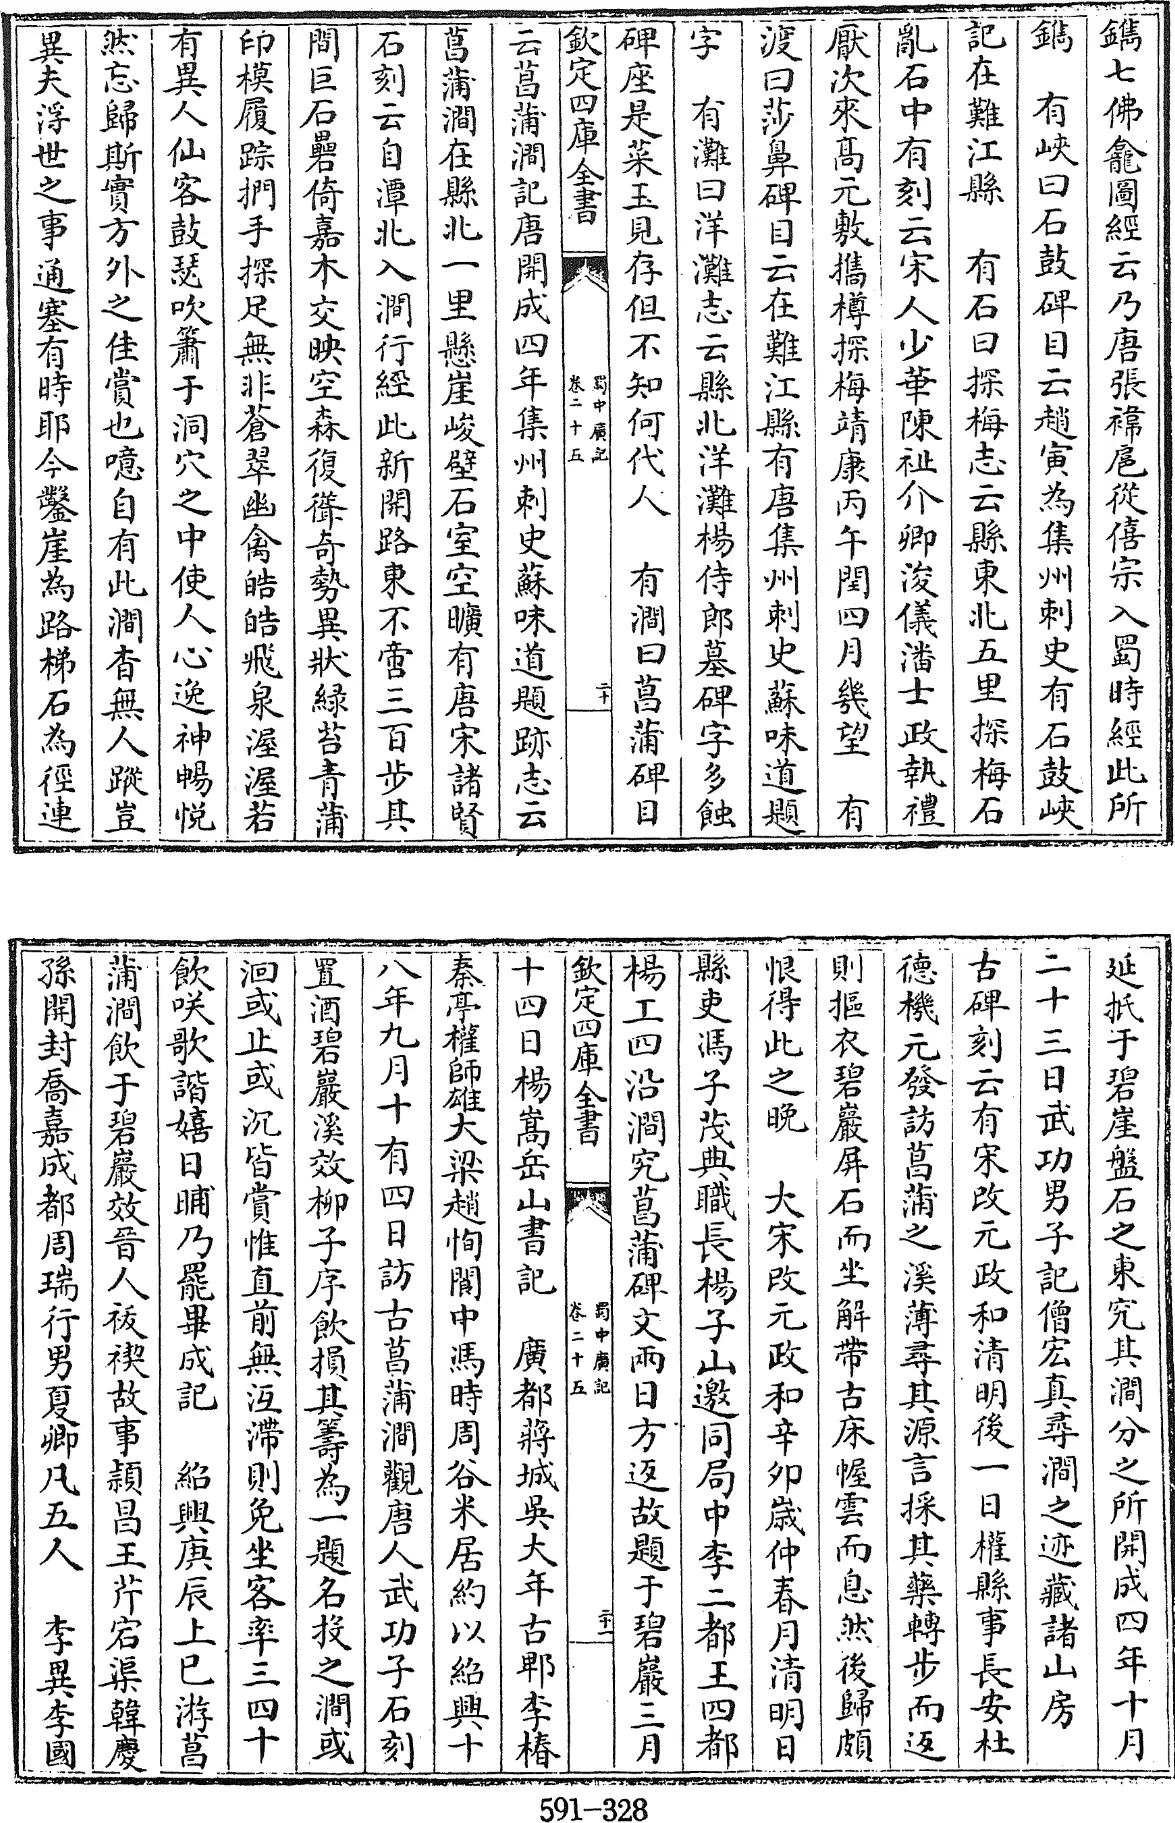 鐫七佛龕圖經云乃唐張禕扈從僖宗入蜀時經此所
鐫　有峽曰石鼓碑目云趙寅為集州刺史有石鼓峽
記在難江縣　有石曰探梅志云縣東北五里探梅石
亂石中有刻云宋人少華陳祉介卿浚儀潘士政執禮
厭次來髙元敷攜樽探梅靖康丙午閏四月㡬望　有
渡曰莎鼻碑目云在難江縣有唐集州刺史蘇味道題
字　有灘曰洋灘志云縣北洋灘楊侍郎墓碑字多蝕
碑座是菜玉見存但不知何代人　有澗曰菖蒲碑目
欽定四庫全書
蜀中廣記
卷二十五
二十
云菖蒲澗記唐開成四年集州刺史蘇味道題跡志云
菖蒲澗在縣北一里懸崖峻壁石室空曠有唐宋諸賢
石刻云自潭北入澗行經此新開路東不啻三百步其
間巨石礨倚嘉木交映空森復徬奇勢異狀緑苔青蒲
印模履踪捫手探足無非蒼翠幽禽皓皓飛泉渥渥若
有異人仙客鼓瑟吹簫于洞穴之中使人心逸神暢悦
然忘歸斯實方外之佳賞也噫自有此澗杳無人蹤豈
異夫浮世之事通塞有時耶今鑿崖為路梯石為徑連
延抵于碧崖盤石之東究其澗分之所開成四年十月
二十三日武功男子記僧宏真尋澗之迹藏諸山房
古碑刻云有宋改元政和清明後一日權縣事長安杜
德機元發訪菖蒲之溪薄尋其源言採其藥轉步而返
則摳衣碧巖屏石而坐解帶古床幄雲而息然後歸頗
恨得此之晚　大宋改元政和辛卯歳仲春月清明日
縣吏馮子茂典職長楊子山邀同局中李二都王四都
楊工四沿澗究菖蒲碑文兩日方返故題于碧巖三月
欽定四庫全書
蜀中廣記
卷二十五
二十一
十四日楊嵩岳山書記　廣都蔣城吳大年古郫李椿
秦亭權師雄大梁趙恂閬中馮時周谷米居約以紹興十
八年九月十有四日訪古菖蒲澗觀唐人武功子石刻
置酒碧巖溪效柳子序飲損其籌為一題名投之澗或
洄或止或沉皆賞惟直前無沍滯則免坐客率三四十
飲咲歌諧嬉日晡乃罷畢成記　紹興庚辰上巳游菖
蒲澗飲于碧巖效晉人祓禊故事頴昌王芹宕渠韓慶
孫開封喬嘉成都周瑞行男夏卿凡五人　李異李國
591-328